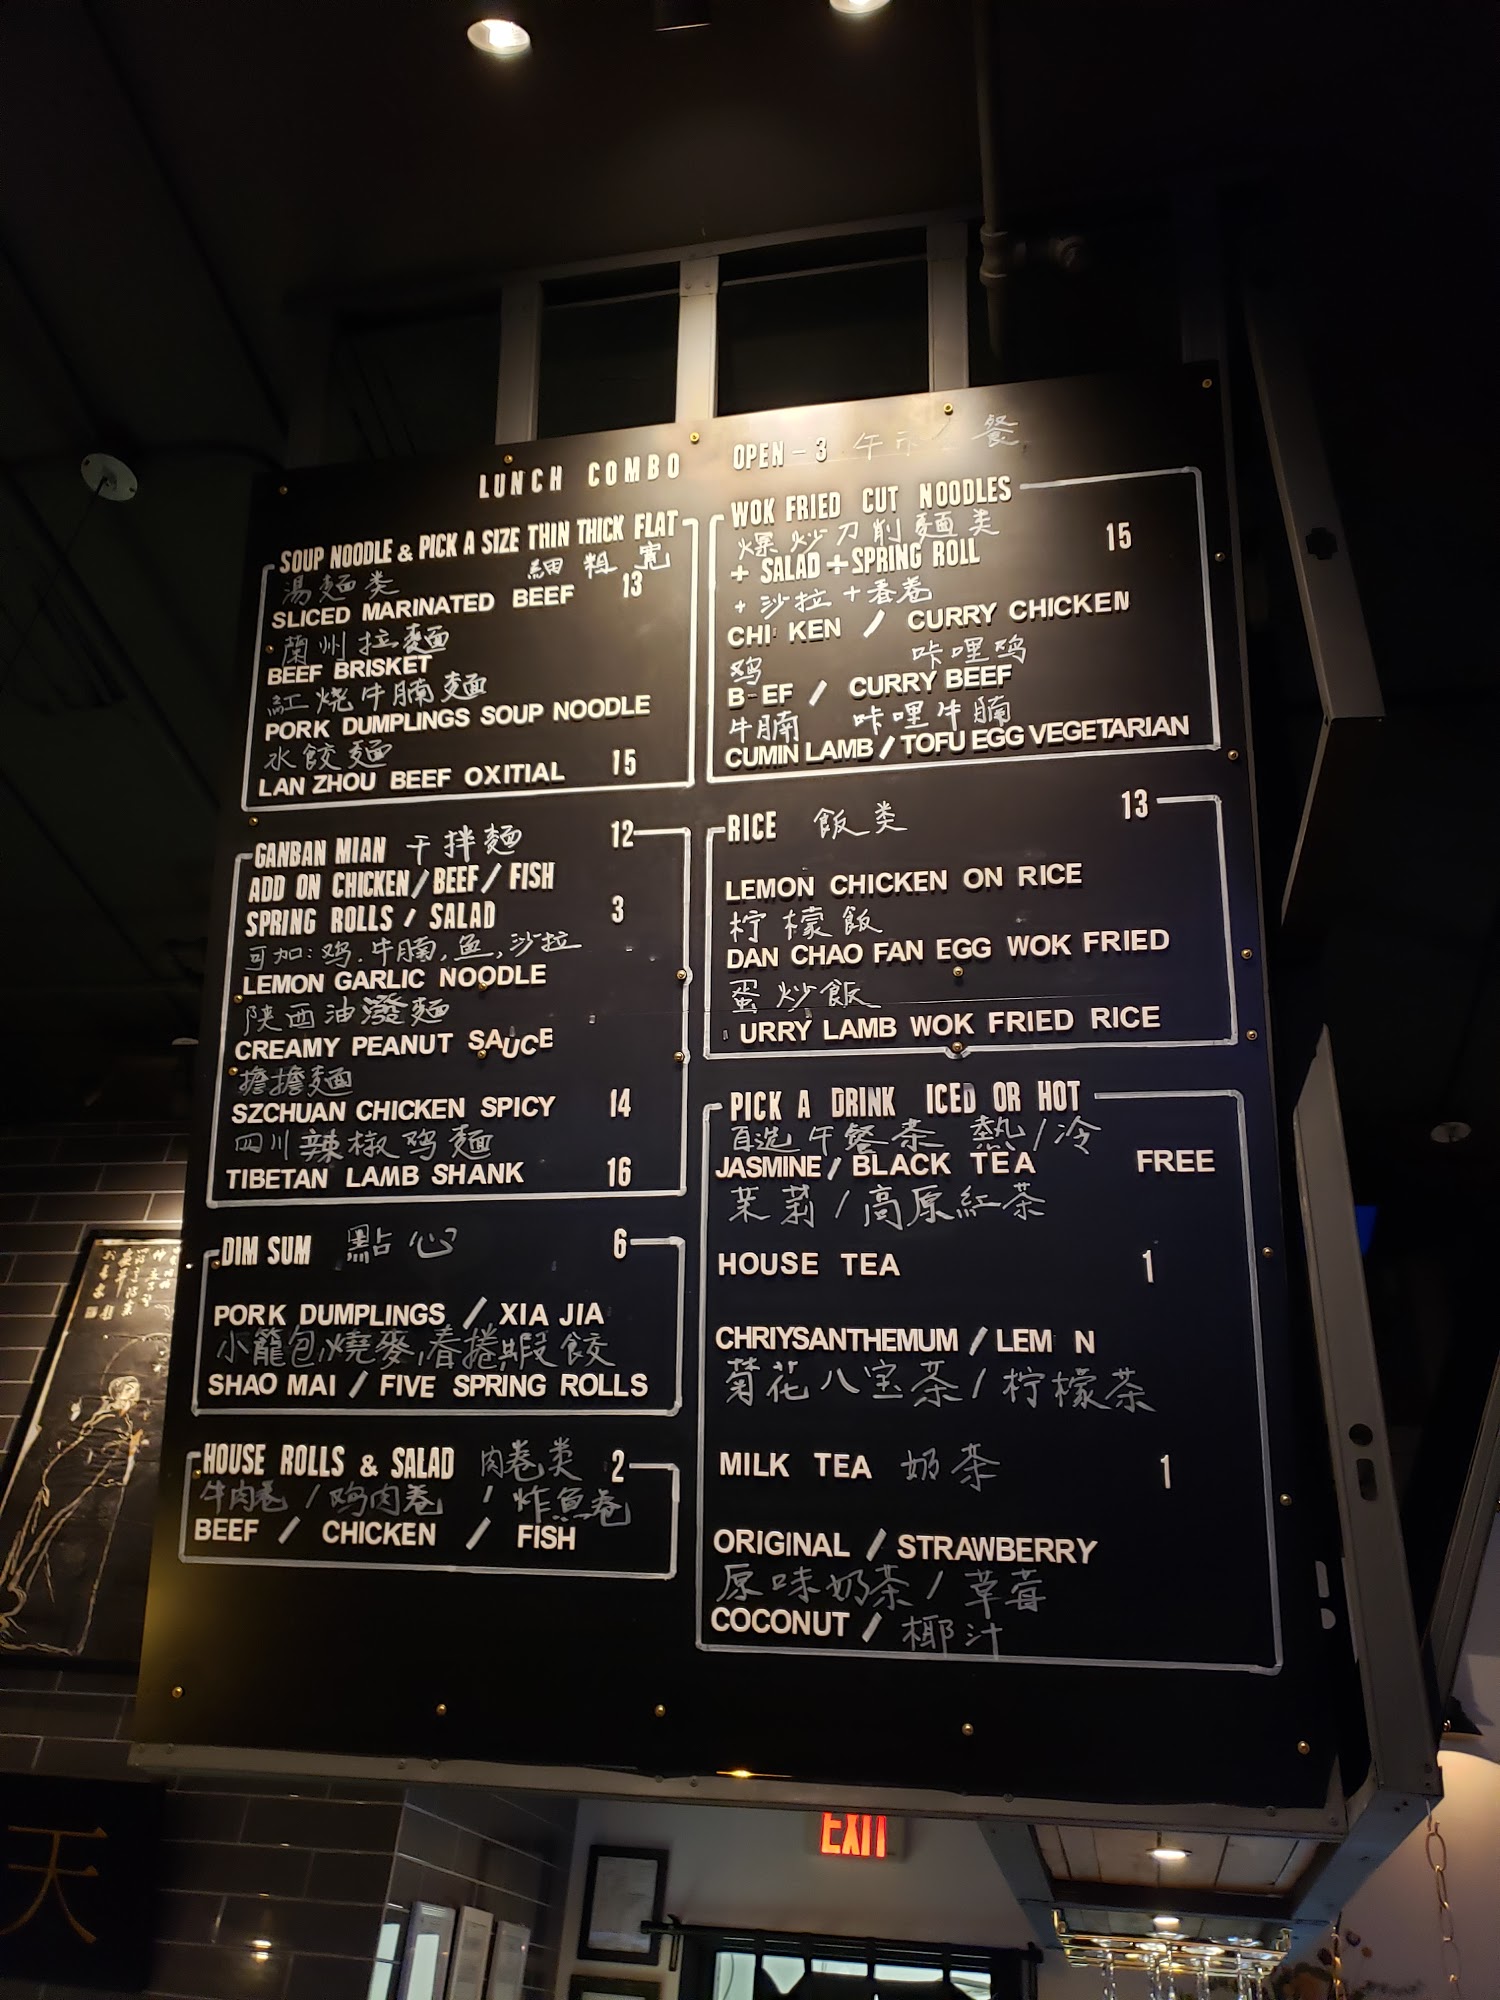 LUNCH COMBO OPEN - 3 午市 餐
SOUP NOODLE & PICK A SIZE THIN THICK FLAT
湯麵类 細 粗 寬
SLICED MARINATED BEEF 13
蘭州拉麵
BEEF BRISKET
紅烧牛腩麵
PORK DUMPLINGS SOUP NOODLE
水餃麵
LAN ZHOU BEEF OXITIAL 15
GANBAN MIAN 干拌麵 12
ADD ON CHICKEN/BEEF/FISH
SPRING ROLLS / SALAD 3
可加:鸡,牛腩,鱼,沙拉
LEMON GARLIC NOODLE
陕西油潑麵
CREAMY PEANUT SAUCE
擔擔麵
SZCHUAN CHICKEN SPICY 14
四川辣椒鸡麵
TIBETAN LAMB SHANK 16
DIM SUM 點心 6
PORK DUMPLINGS / XIA JIA
小籠包/燒麥,春捲,蝦餃
SHAO MAI / FIVE SPRING ROLLS
HOUSE ROLLS & SALAD 肉卷类 2
牛肉卷 / 鸡肉卷 / 炸魚卷
BEEF / CHICKEN / FISH
WOK FRIED CUT NOODLES
爆炒刀削麵类 15
+ SALAD + SPRING ROLL
+ 沙拉 + 春卷
CHI KEN / CURRY CHICKEN
鸡 咖哩鸡
B-EF / CURRY BEEF
牛腩 咖哩牛腩
CUMIN LAMB / TOFU EGG VEGETARIAN
RICE 飯类 13
LEMON CHICKEN ON RICE
柠檬飯
DAN CHAO FAN EGG WOK FRIED
蛋炒飯
URRY LAMB WOK FRIED RICE
PICK A DRINK ICED OR HOT
自选午餐茶 熱/冷
JASMINE / BLACK TEA FREE
茉莉 / 高原紅茶
HOUSE TEA 1
CHRIYSANTHEMUM / LEM N
菊花八宝茶 / 柠檬茶
MILK TEA 奶茶 1
ORIGINAL / STRAWBERRY
原味奶茶 / 草莓
COCONUT / 椰汁
天
EXIT